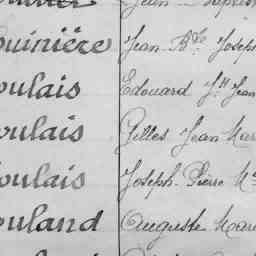 ouinière Jean Bte Joseph
oulais Edouard Jh Jean
oulais Gilles Jean Mar
oulais Joseph Pierre
ouland Auguste Mari